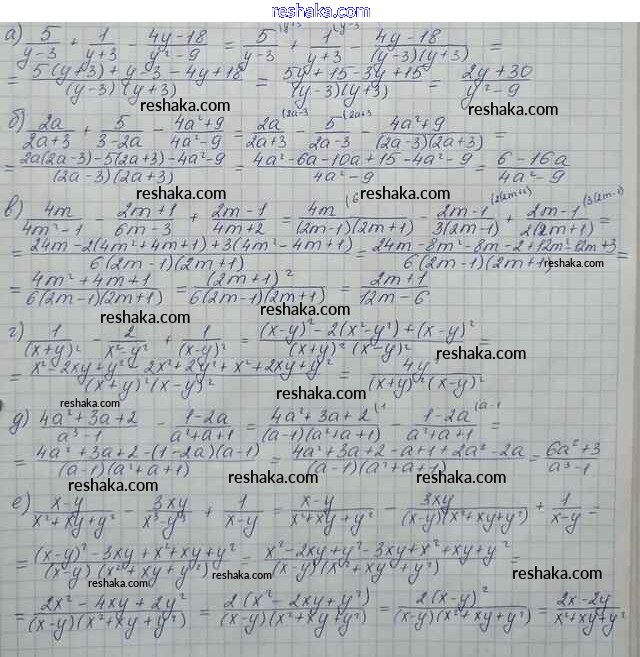 reshaka.ru
а) 5/(y-3) + 1/(y+3) - (4y-18)/(y²-9) = 5/(y-3) (y+3 + 1/(y+3) (y-3 - (4y-18)/((y-3)(y+3)) =
= (5(y+3)+y-3-4y+18)/((y-3)(y+3)) = (5y+15-3y+15)/((y-3)(y+3)) = (2y+30)/(y²-9)
reshaka.ru
б) 2a/(2a+3) + 5/(3-2a) - (4a²+9)/(4a²-9) = 2a/(2a+3) (2a-3 - 5/(2a-3) (2a+3 - (4a²+9)/((2a-3)(2a+3)) =
= (2a(2a-3)-5(2a+3)-4a²-9)/((2a-3)(2a+3)) = (4a²-6a-10a+15-4a²-9)/(4a²-9) = (6-16a)/(4a²-9)
reshaka.ru reshaka.ru
в) 4m/(4m²-1) - (2m+1)/(6m-3) + (2m-1)/(4m+2) = 4m/((2m-1)(2m+1)) (6 - (2m-1)/(3(2m-1)) (2(2m+1) + (2m-1)/(2(2m+1)) (3(2m-1) =
= (24m-2(4m²+4m+1)+3(4m²-4m+1))/(6(2m-1)(2m+1)) = (24m-8m²-8m-2+12m²-12m+3)/(6(2m-1)(2m+1)) =
reshaka.ru
= (4m²+4m+1)/(6(2m-1)(2m+1)) = (2m+1)²/(6(2m-1)(2m+1)) = (2m+1)/(12m-6)
reshaka.ru reshaka.ru
г) 1/(x+y)² - 2/(x²-y²) + 1/(x-y)² = ((x-y)²-2(x²-y²)+(x-y)²)/((x+y)²(x-y)²) =
reshaka.ru
= (x²-2xy+y²-2x²+2y²+x²+2xy+y²)/((x+y)²(x-y)²) = 4y/((x+y)²(x-y)²)
reshaka.ru reshaka.ru
д) (4a²+3a+2)/(a³-1) - (1-2a)/(a²+a+1) = (4a²+3a+2)/((a-1)(a²+a+1)) (1 - (1-2a)/(a²+a+1) (a-1 =
= (4a²+3a+2-(1-2a)(a-1))/((a-1)(a²+a+1)) = (4a²+3a+2-a+1+2a²-2a)/((a-1)(a²+a+1)) = (6a²+3)/(a³-1)
reshaka.ru reshaka.ru
е) (x-y)/(x²+xy+y²) - 3xy/(x³-y³) + 1/(x-y) = (x-y)/(x²+xy+y²) - 3xy/((x-y)(x²+xy+y²)) + 1/(x-y) -
reshaka.ru reshaka.ru
= ((x-y)²-3xy+x²+xy+y²)/((x-y)(x²+xy+y²)) = (x²-2xy+y²-3xy+x²+xy+y²)/((x-y)(x²+xy+y²)) =
reshaka.ru reshaka.ru reshaka.ru
= (2x²-4xy+2y²)/((x-y)(x²+xy+y²)) = 2(x²-2xy+y²)/((x-y)(x²+xy+y²)) = 2(x-y)²/((x-y)(x²+xy+y²)) = (2x-2y)/(x²+xy+y²)
reshaka.ru